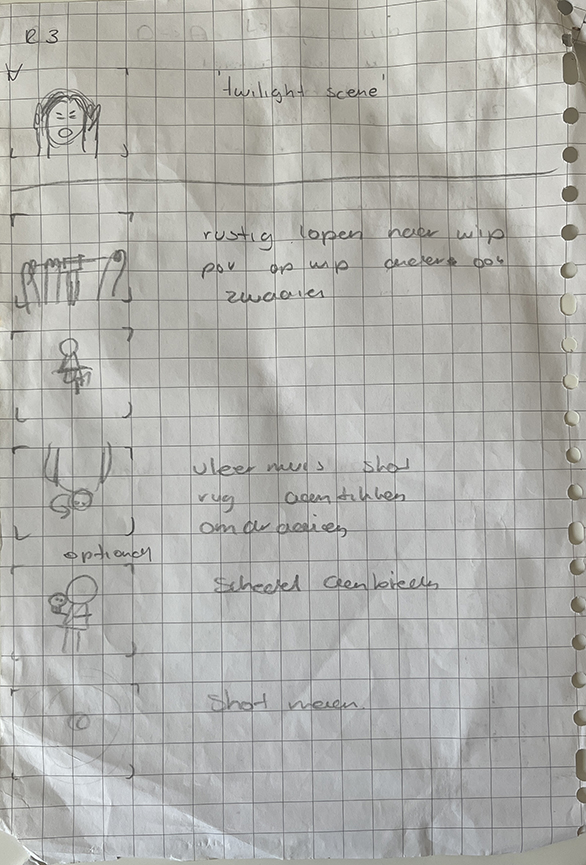 R 3
'twilight scene'
rustig lopen naar wip
pov op wip andere
zwaaien
vleermuis shot
rug aantikken
omdraaien
optional
Schedel aanbieden
Shot